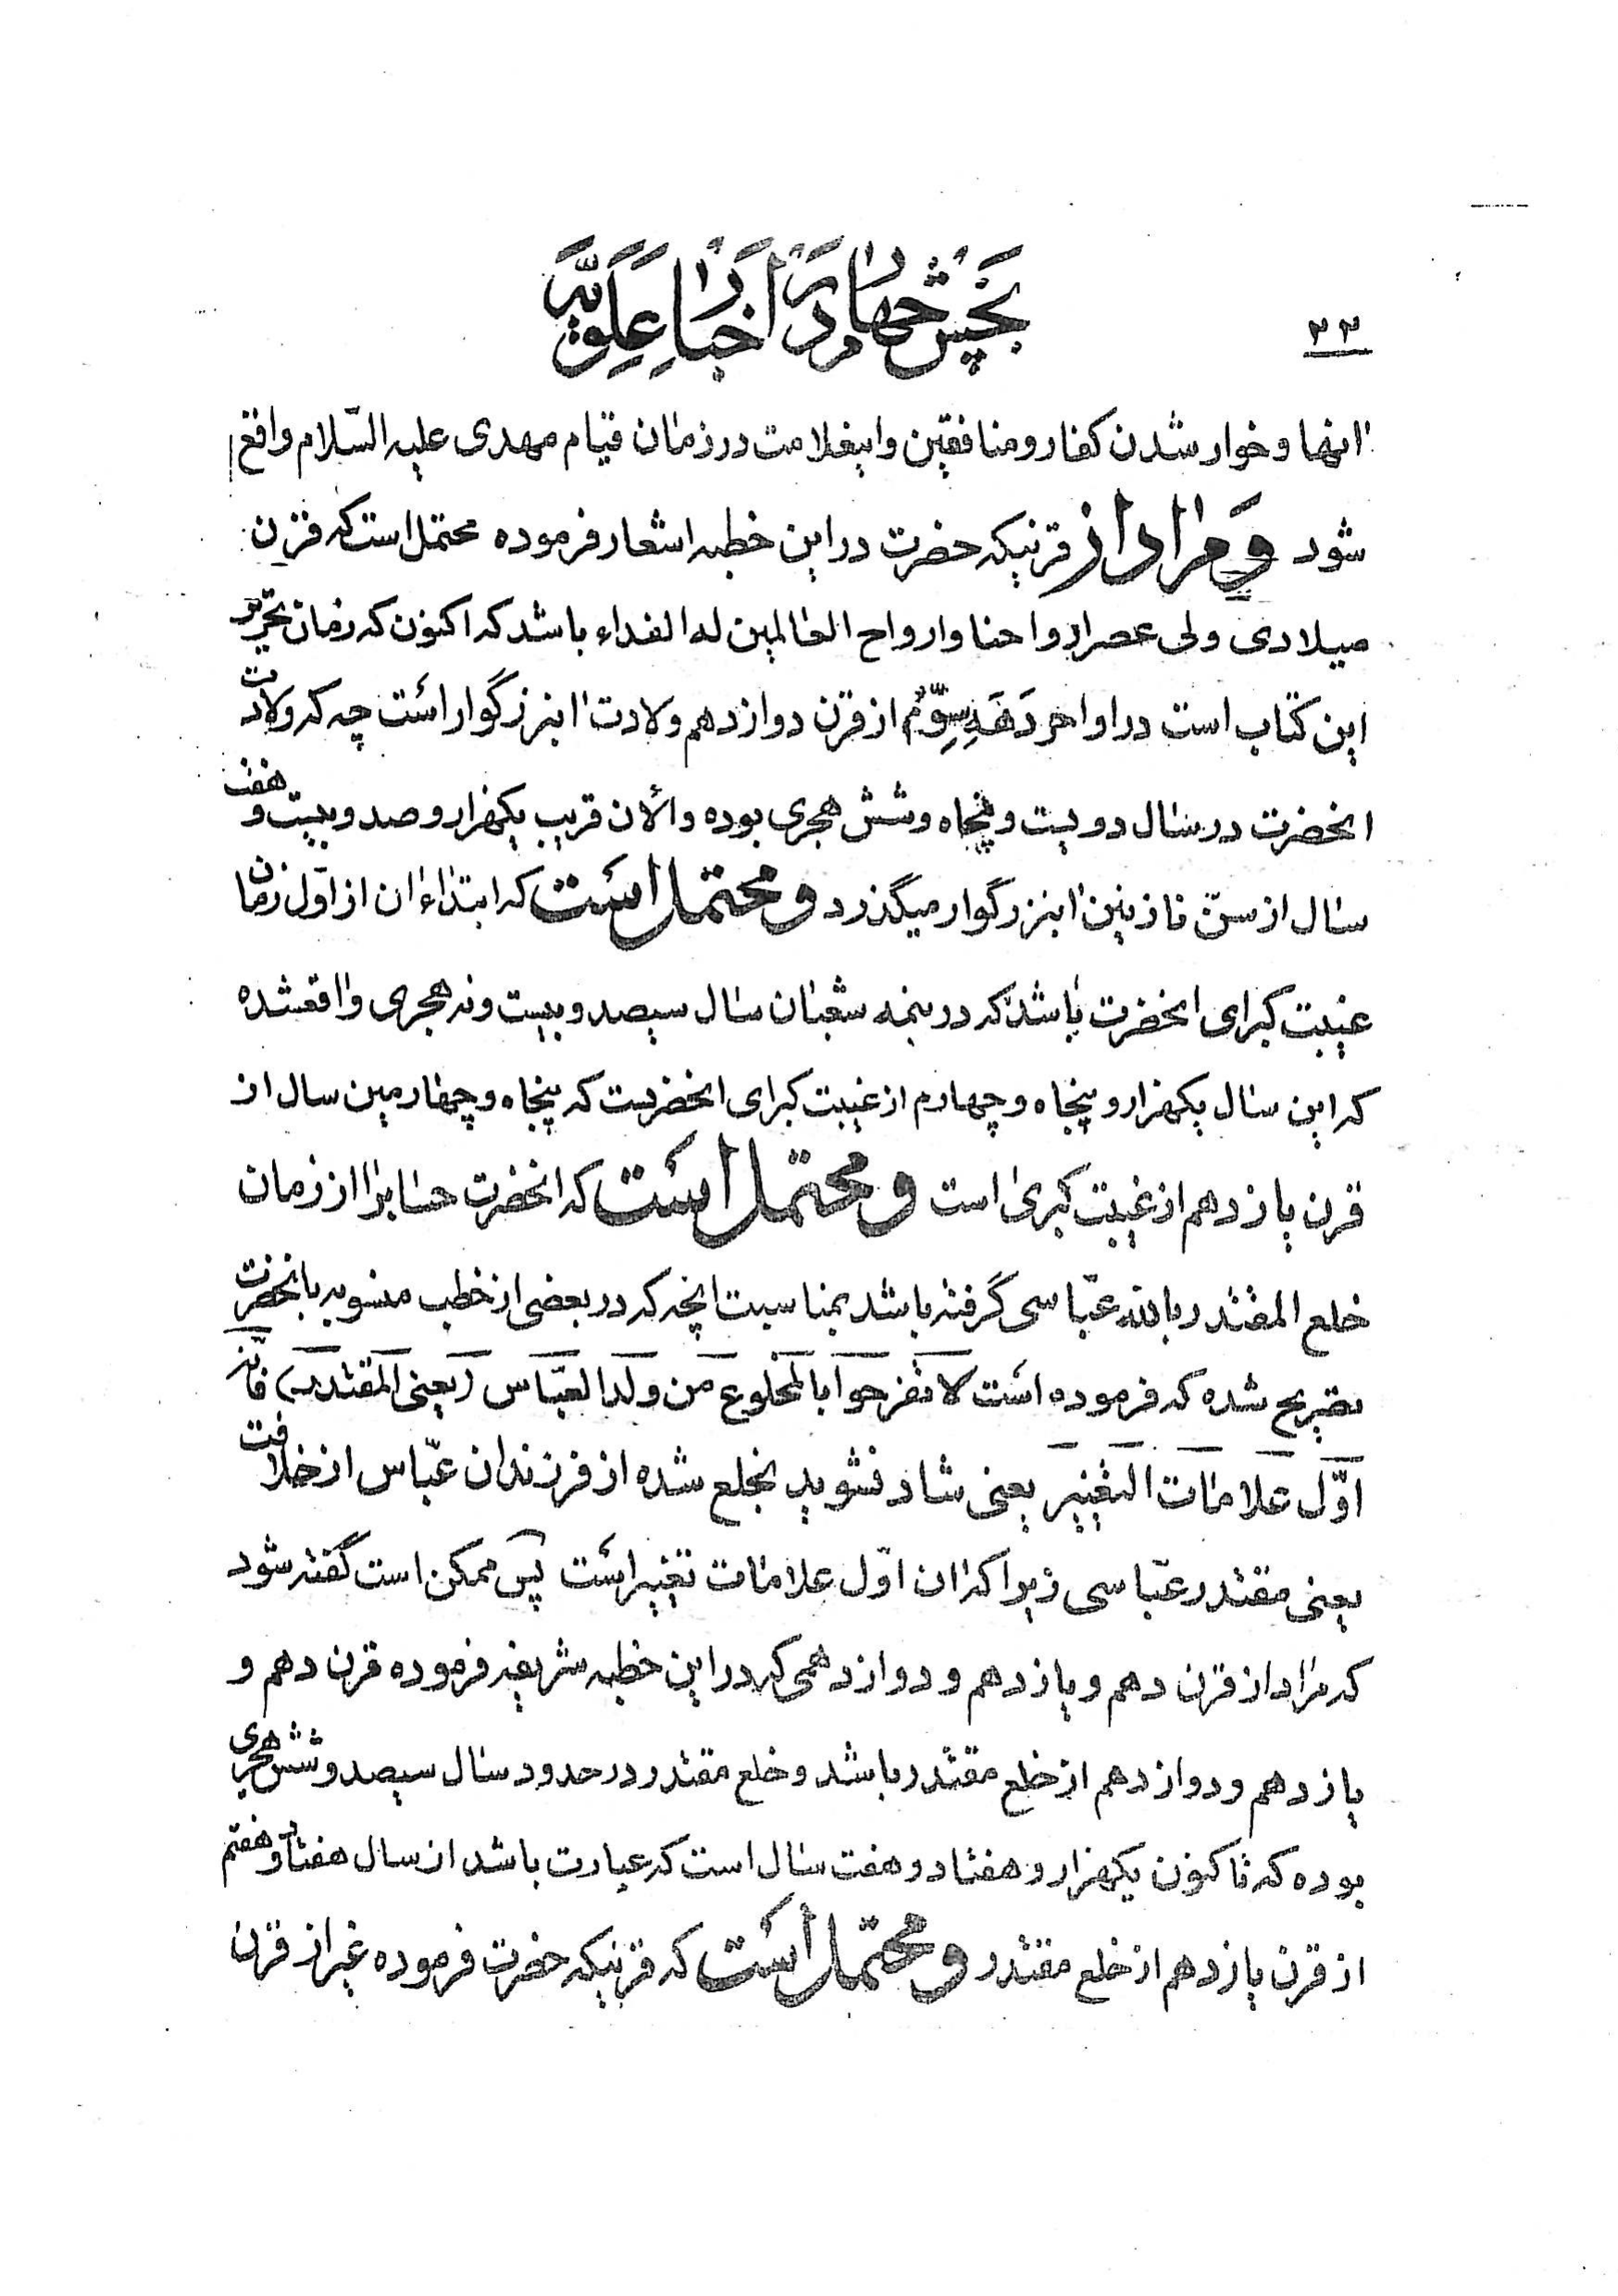 بخش چهارم در اخبار علویه
۲۲
انها و خوار شدن کفار و منافقین و اینعلامت در زمان قیام مهدی علیه السّلام واقع
شود وَمراد از قرنیکه حضرت در این خطبه اشعار فرموده محتمل است که قرن
میلادی ولی عصر ارواحنا وارواح العالمین له الفداء باشد که اکنون که زمان تحریر
این کتاب است در اواخر دَهَهِ سِوّم از قرن دوازدهم ولادت اینبزرگوار است چه که ولادت
انحضرت در سال دویست و پنجاه و شش هجری بوده والأن قریب یکهزار و صد و بیست و هفت
سال از سنّ نازنین اینبزرگوار میگذرد و محتمل است که ابتداء ان از اوّل زمان
غیبت کبرای انحضرت باشد که در نیمه شعبان سال سیصد و بیست و نه هجری واقعشده
که این سال یکهزار و پنجاه و چهارم از غیبت کبرای انحضرتست که پنجاه و چهارمین سال از
قرن یازدهم از غیبت کبری است و محتمل است که انحضرت حسابرا از زمان
خلع المقتدر بالله عبّاسی گرفته باشد بمناسبت انچه که در بعضی از خطب منسوبه بانحضرت
تصریح شده که فرموده است لا تفرحوا بالمخلوع من ولد العبّاس (یعنی المقتدر) فانّه
اوّل علامات التغییر یعنی شاد نشوید بخلع شده از فرزندان عبّاس از خلافت
یعنی مقتدر عبّاسی زیرا که ان اوّل علامات تغییر است پس ممکن است گفته شود
که مراد از قرن دهم و یازدهم و دوازدهمی که در این خطبه شریفه فرموده قرن دهم و
یازدهم و دوازدهم از خلع مقتدر باشد و خلع مقتدر در حدود سال سیصد و شش هجری
بوده که تا کنون یکهزار و هفتاد و هفت سال است که عبارت باشد از سال هفتاد و هفتم
از قرن یازدهم از خلع مقتدر و محتمل است که قرنیکه حضرت فرموده غیر از قرن